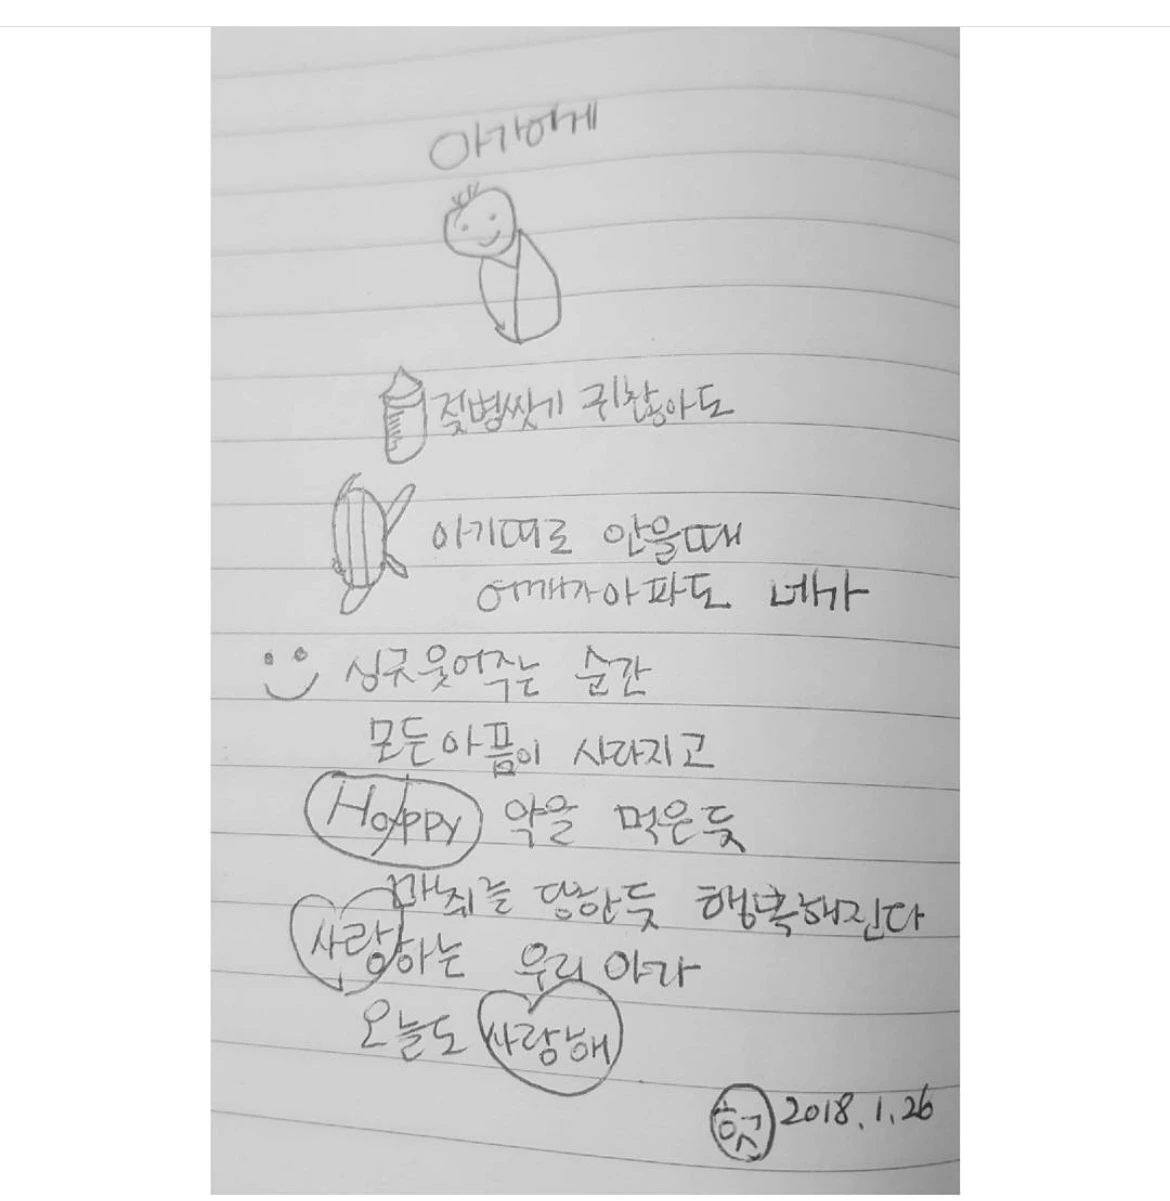 아가에게
젖병씻기 귀찮아도
아기띠로 안을때
어깨가아파도 네가
싱긋웃어주는 순간
모든아픔이 사라지고
Happy 약을 먹은듯
마취를 당한듯 행복해진다
사랑하는 우리 아가
오늘도 사랑해
2018.1.26